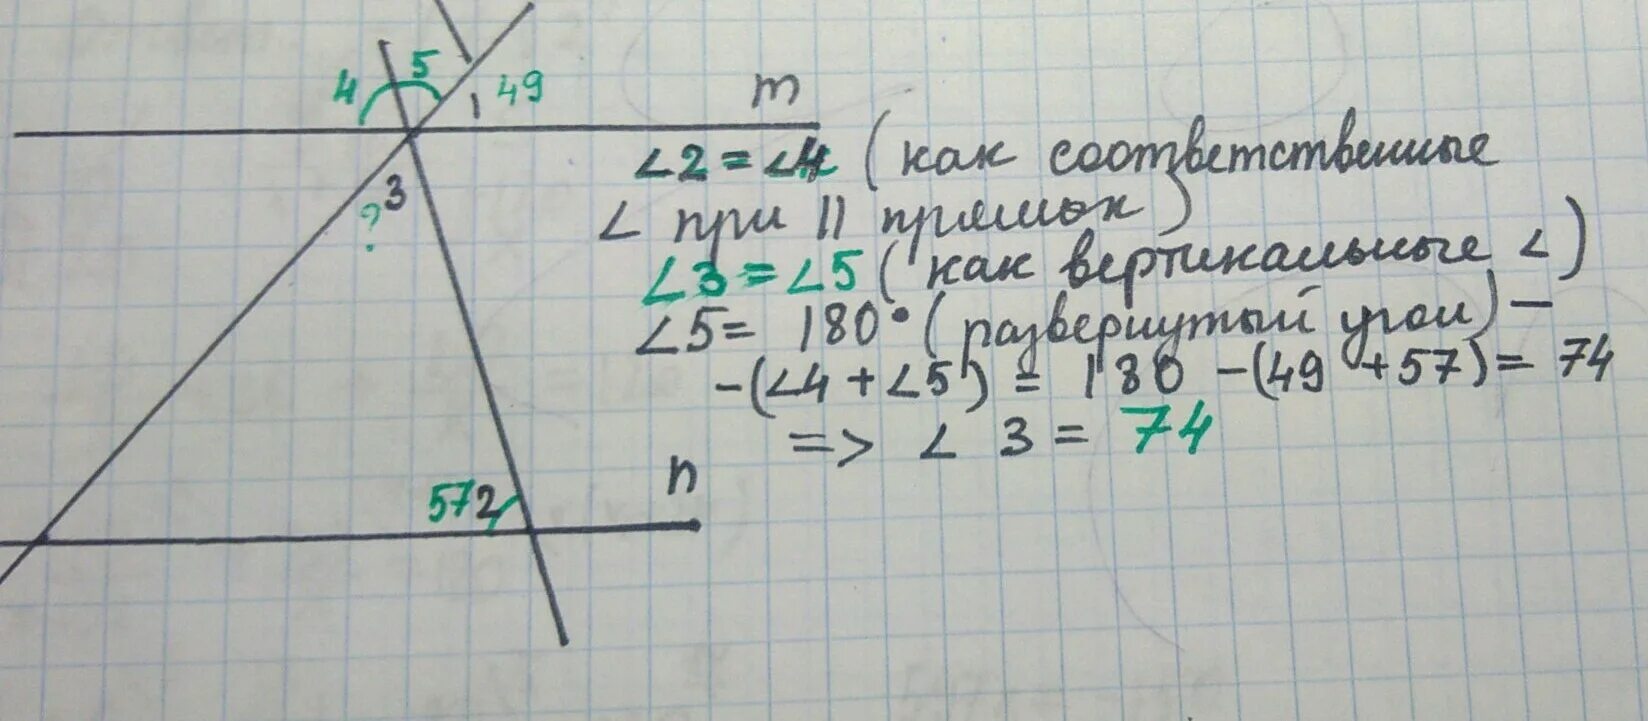 4 5 1 49 m
∠2 = ∠4 (как соответственные
3 ∠ при || прямых)
?
∠3 = ∠5 (как вертикальные ∠)
∠5 = 180° (развернутый угол) –
–(∠4 + ∠5) = 180 –(49 +57) = 74
=> ∠ 3 = 74
57 2 n